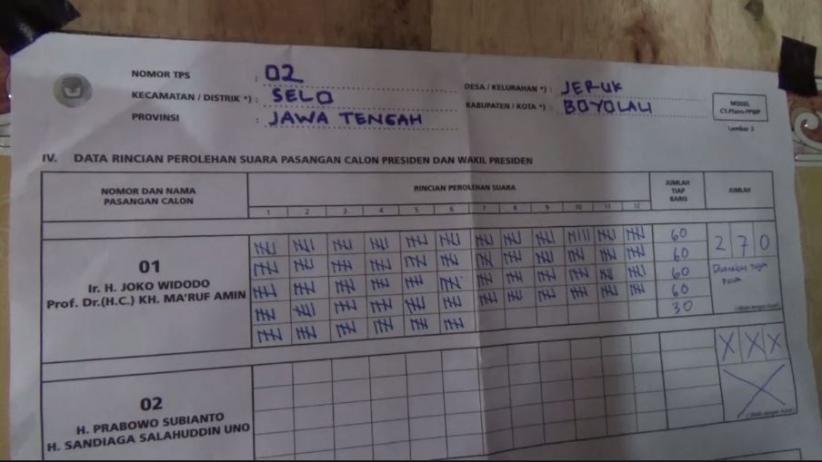 NOMOR TPS : 02
KECAMATAN / DISTRIK *) : SELO
PROVINSI : JAWA TENGAH
DESA / KELURAHAN *) : JERUK
KABUPATEN / KOTA *) : BOYOLALI
MODEL
C1.Plano-PPWP
Lembar 2
IV. DATA RINCIAN PEROLEHAN SUARA PASANGAN CALON PRESIDEN DAN WAKIL PRESIDEN
NOMOR DAN NAMA
PASANGAN CALON
RINCIAN PEROLEHAN SUARA
1 2 3 4 5 6 7 8 9 10 11 12
JUMLAH
TIAP
BARIS
JUMLAH
01
Ir. H. JOKO WIDODO
Prof. Dr.(H.C.) KH. MA'RUF AMIN
60
60
60
60
30
2 7 0
02
H. PRABOWO SUBIANTO
H. SANDIAGA SALAHUDDIN UNO
X X X